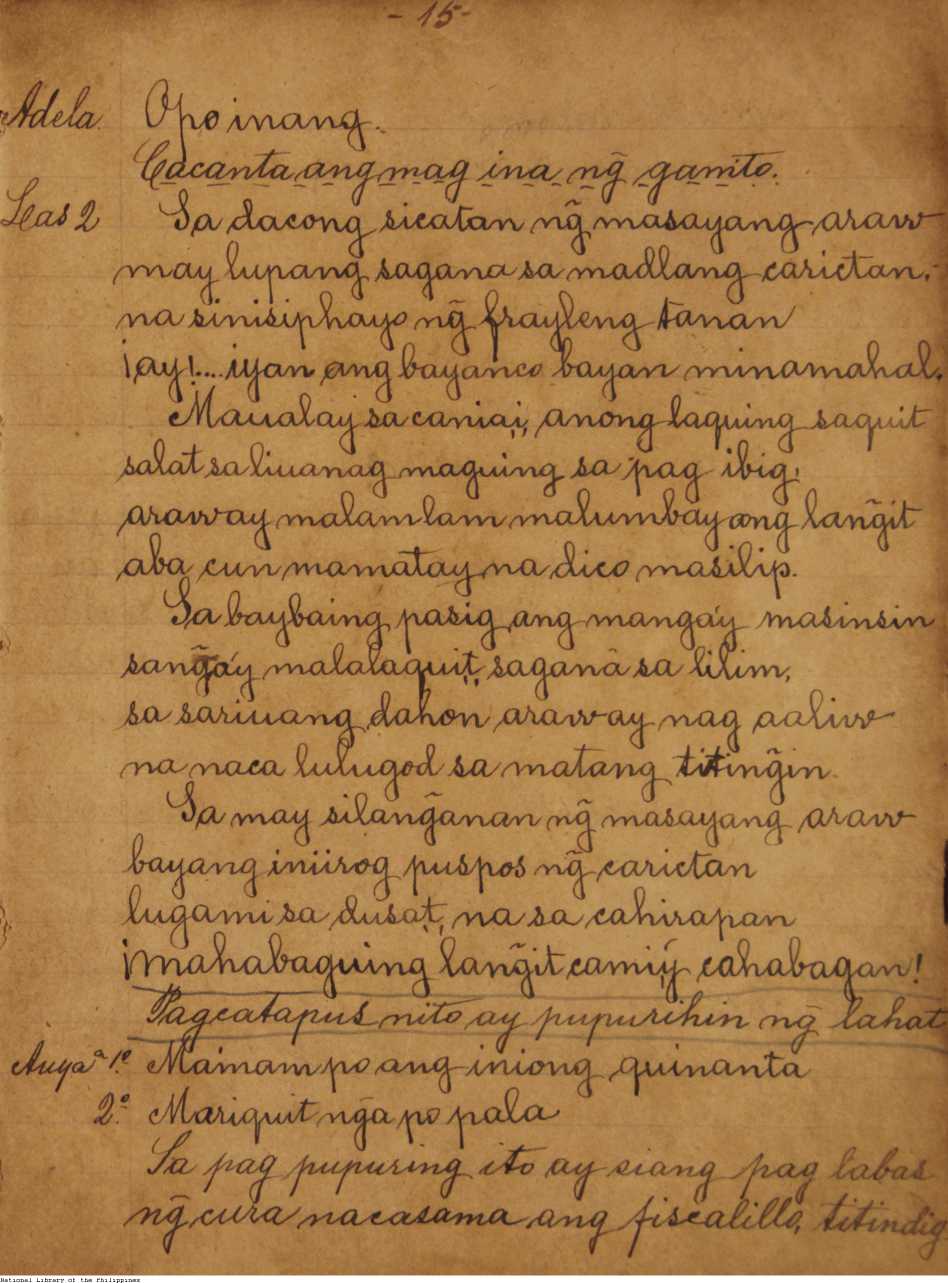 - 15 -
Adela. Opo inang.
Cacanta ang mag ina ng̃ ganito.
Las 2 Sa dacong sicatan ng̃ masayang araw
may lupang sagana sa madlang carictan,
na sinisiphayo ng̃ frayleng tanan
¡ay!... iyan ang bayanco bayan minamahal.
Maualay sa caniai, anong laquing saquit
salat sa liuanag maguing sa pag ibig;
araw ay malamlam malumbay ang lang̃it
aba cun mamatay na dico masilip.
Sa baybaing pasig ang manga'y masinsin
sang̃a'y malalaquit, sagana sa lilim,
sa sariuang dahon araw ay nag aaliw
na naca lulugod sa matang titing̃in.
Sa may silang̃anan ng̃ masayang araw
bayang iniirog puspos ng̃ carictan
lugami sa dusat, na sa cahirapan
¡mahabaguing lang̃it camiy cahabagan!
Pagcatapus nito ay pupurihin ng̃ lahat
Auyaª 1º Mainam po ang iniong quinanta
2º Mariquit ng̃a po pala
Sa pag pupuring ito ay siang pag labas
ng̃ cura nacasama ang fiscalillo, titindig
National Library of the Philippines